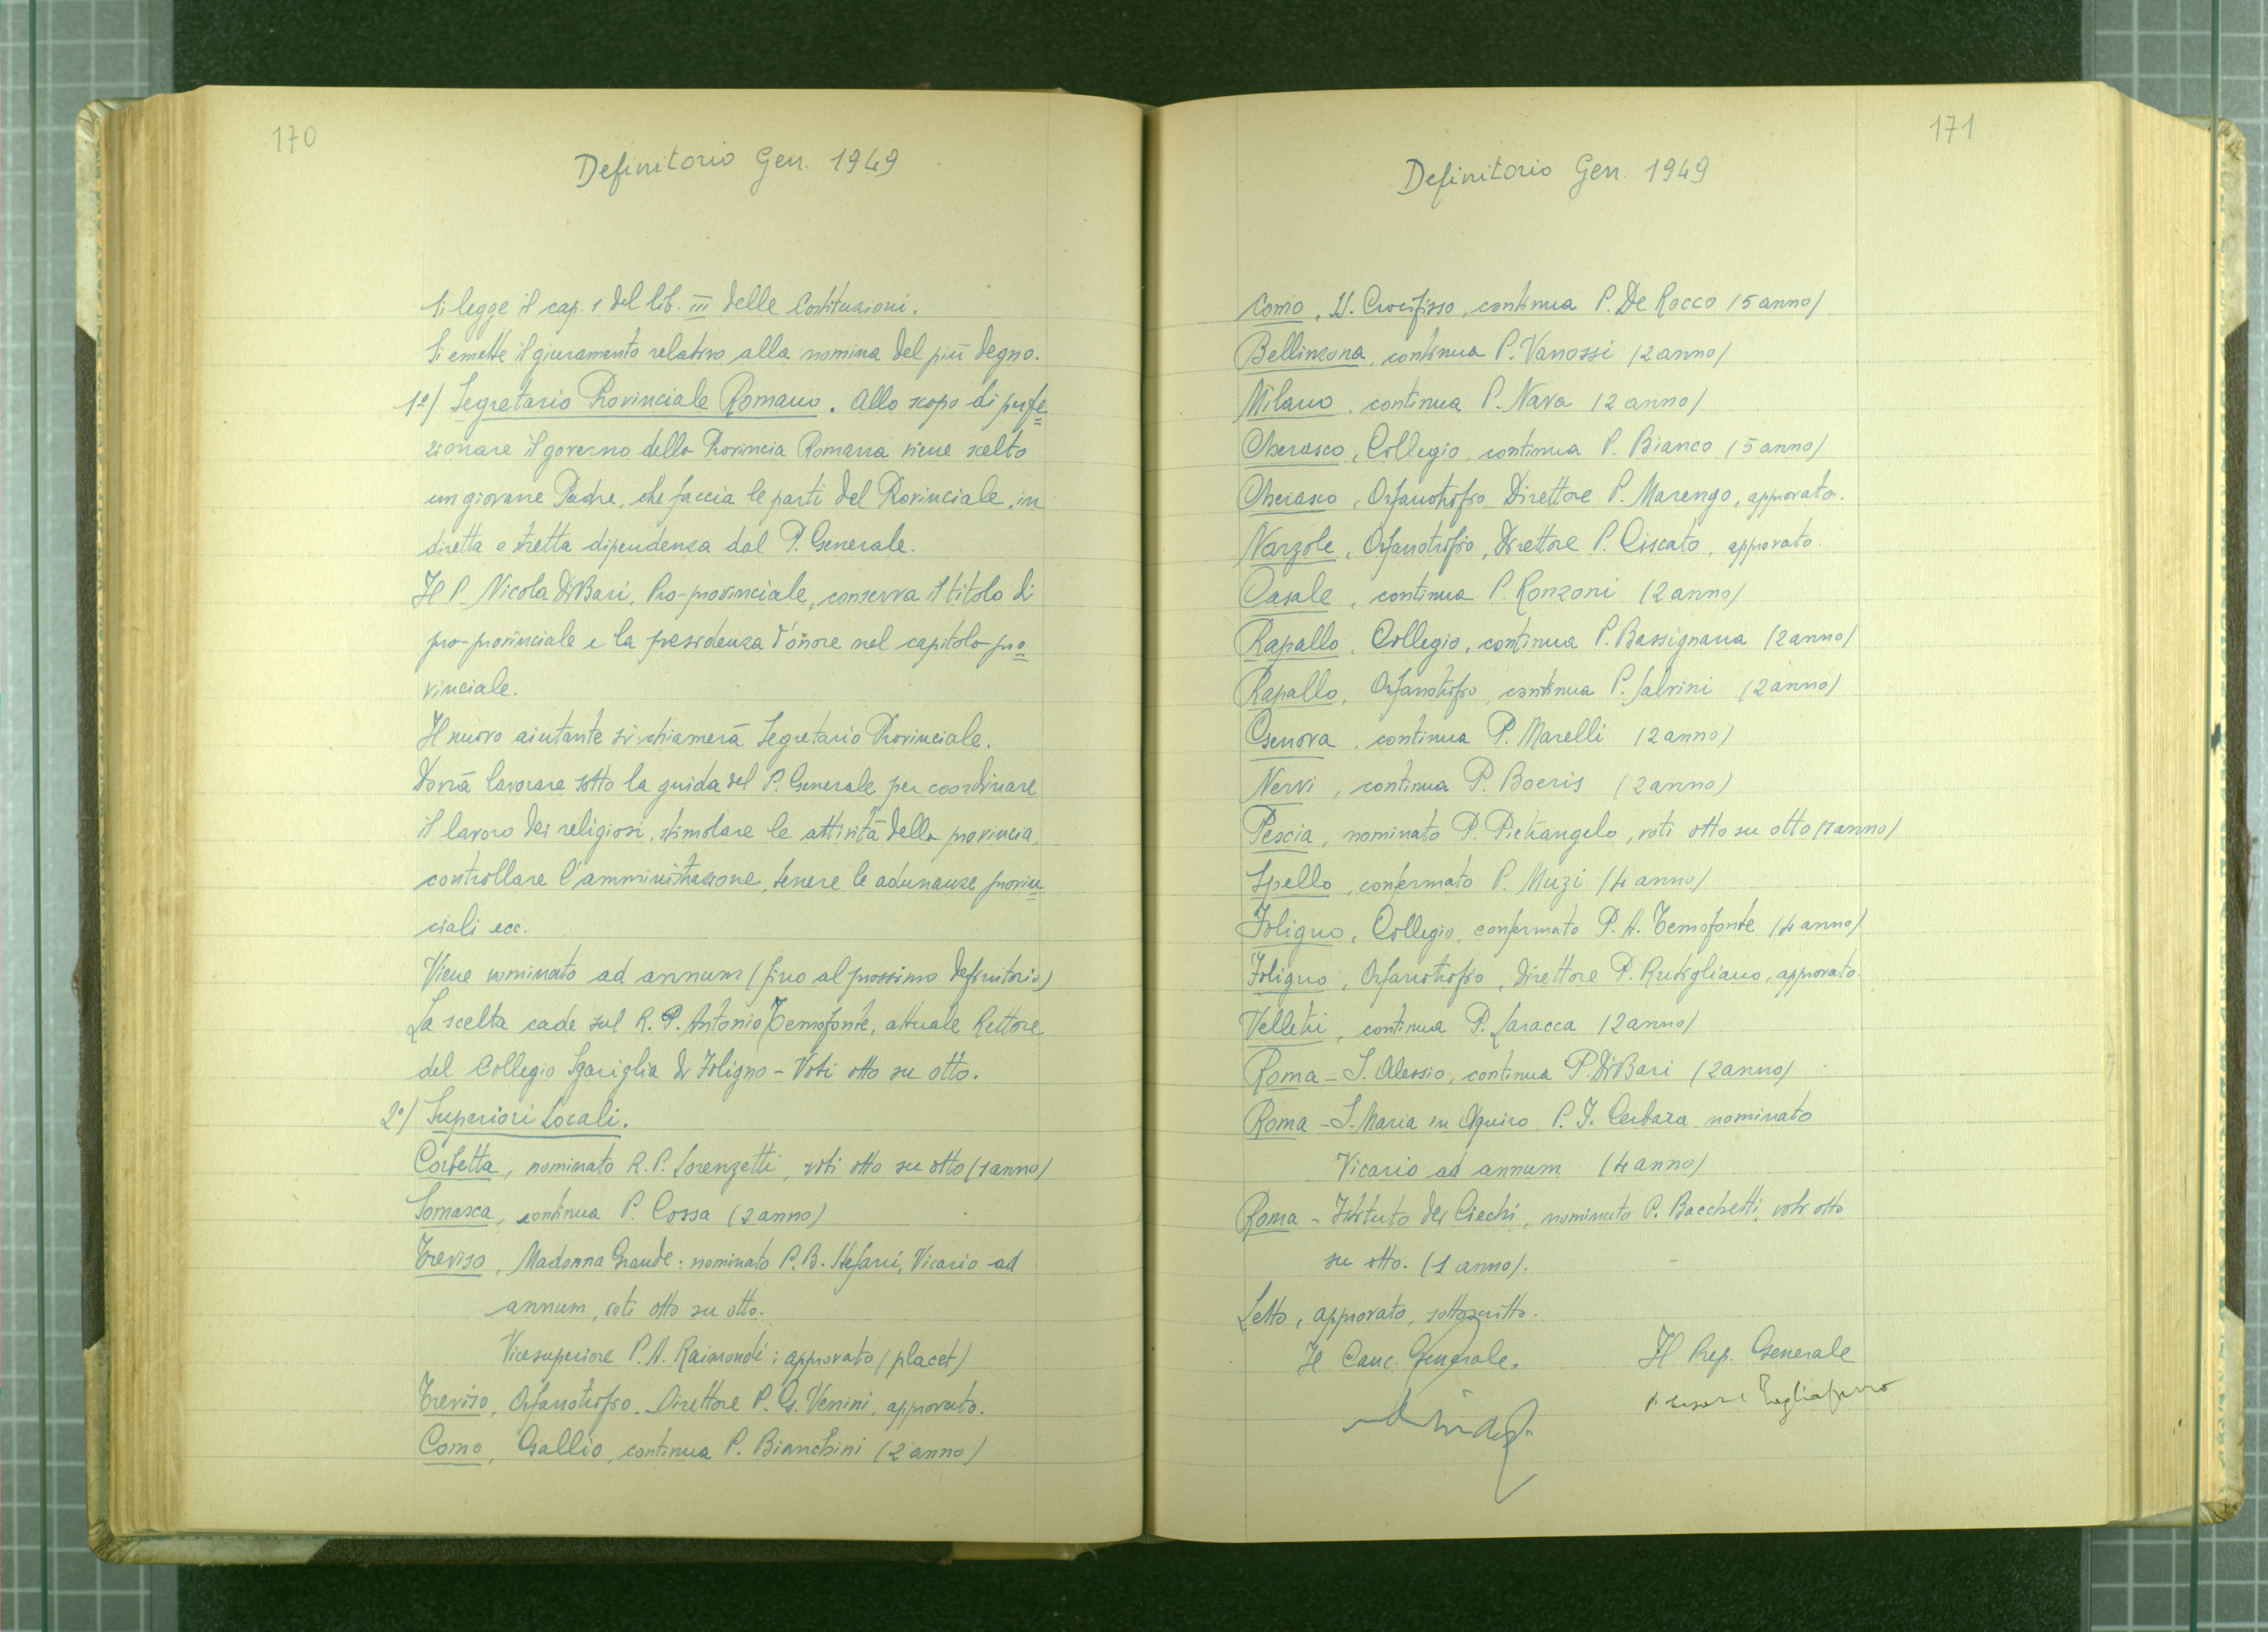 170
Definitorio Gen. 1949
Si legge il cap. 1 del lib. III delle Costituzioni.
Si emette il giuramento relativo alla nomina del più degno.
1º/ Segretario Provinciale Romano. Allo scopo di perfe=
zionare il governo della Provincia Romana viene scelto
un giovane Padre, che faccia le parti del Provinciale, in
diretta e stretta dipendenza dal P. Generale.
Il P. Nicola Di Bari, Pro-provinciale, conserva il titolo di
pro-provinciale e la presidenza d'onore nel capitolo pro=
vinciale.
Il nuovo aiutante si chiamerà Segretario Provinciale.
Dovrà lavorare sotto la guida del P. Generale per coordinare
il lavoro dei religiosi, stimolare le attività della provincia,
controllare l'amministrazione, tenere le adunanze provin=
ciali ecc.
Viene nominato ad annum (fino al prossimo definitorio)
La scelta cade sul R. P. Antonio Temofonte, attuale Rettore
del Collegio Sgariglia di Foligno - Voti otto su otto.
2º/ Superiori Locali.
Corbetta, nominato R. P. Lorenzetti, voti otto su otto (1 anno)
Somasca, continua P. Cossa (2 anno)
Treviso, Madonna Grande: nominato P. B. Stefani, Vicario ad
annum, voti otto su otto.
Vicesuperiore P. A. Raimondi: approvato (placet)
Treviso, Orfanotrofio. Direttore P. G. Venini, approvato.
Como, Gallio, continua P. Bianchini (2 anno)
171
Definitorio Gen. 1949
Como, SS. Crocifisso, continua P. De Rocco (5 anno)
Bellinzona, continua P. Vanossi (2 anno)
Milano, continua P. Nava (2 anno)
Cherasco, Collegio, continua P. Bianco (5 anno)
Cherasco, Orfanotrofio, Direttore P. Marengo, approvato.
Narzole, Orfanotrofio, Direttore P. Ciscato, approvato.
Casale, continua P. Ronzoni (2 anno)
Rapallo, Collegio, continua P. Bassignana (2 anno)
Rapallo, Orfanotrofio, continua P. Salvini (2 anno)
Genova, continua P. Marelli (2 anno)
Nervi, continua P. Boeris (2 anno)
Pescia, nominato P. Pietrangelo, voti otto su otto (1 anno)
Spello, confermato P. Muzi (4 anno)
Foligno, Collegio, confermato P. A. Temofonte (4 anno)
Foligno, Orfanotrofio, Direttore P. Rutigliano, approvato.
Velletri, continua P. Saracca (2 anno)
Roma - S. Alessio, continua P. Di Bari (2 anno)
Roma - S. Maria in Aquiro, P. F. Cerbara nominato
Vicario ad annum (4 anno)
Roma - Istituto dei Ciechi, nominato P. Bacchetti, voti otto
su otto. (1 anno).
Letto, approvato, sottoscritto.
Il Canc. Generale.
Il Prep. Generale
P. Cesare Tagliaferro